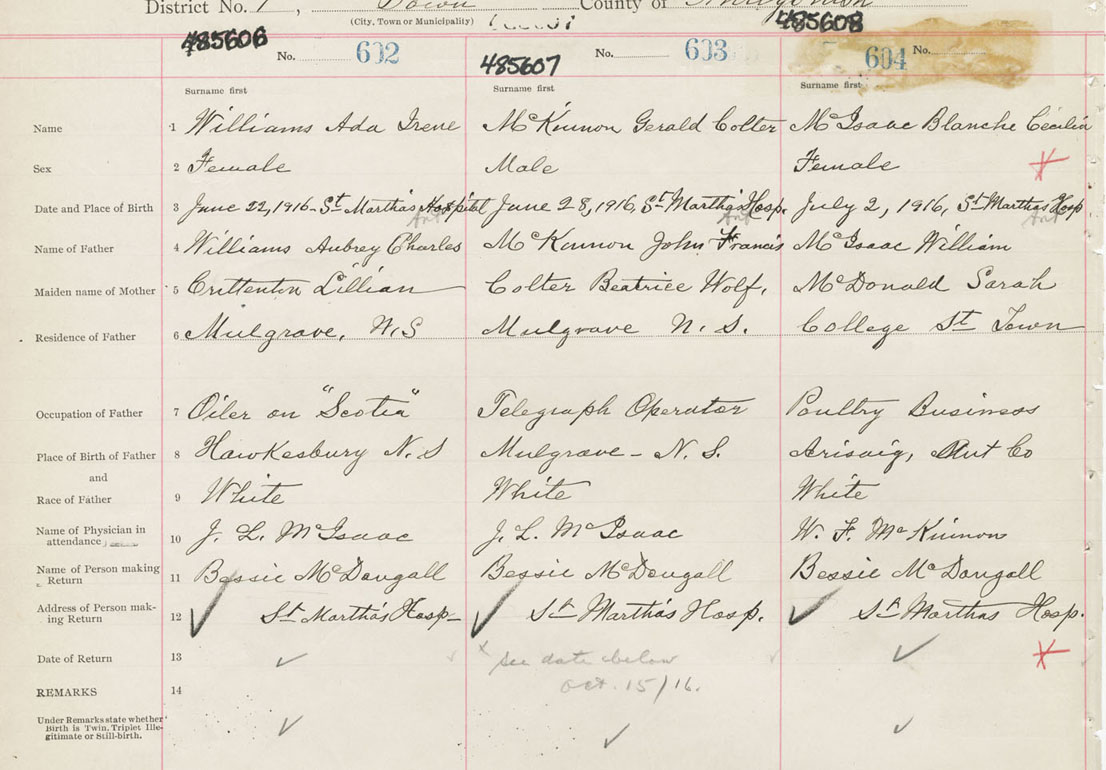 District No. 1, Town County of
(City, Town or Municipality)
485606 485607 485608
No. 602 No. 603 No. 604
Surname first Surname first Surname first
Name 1 Williams Ada Irene McKinnon Gerald Colter McIsaac Blanche Cecilia
Sex 2 Female Male Female
Date and Place of Birth 3 June 22, 1916 - St Martha's Hospital June 28, 1916, St Martha's Hosp. July 2, 1916, St Marthas Hosp
Ant Ant Ant
Name of Father 4 Williams Aubrey Charles McKinnon John Francis McIsaac William
Maiden name of Mother 5 Crittenton Lillian Colter Beatrice Wolf, McDonald Sarah
Residence of Father 6 Mulgrave, N.S Mulgrave N. S. College St Town
Occupation of Father 7 Oiler on "Scotia" Telegraph Operator Poultry Business
Place of Birth of Father 8 Hawkesbury N. S Mulgrave - N. S. Arisaig, Ant Co
and
Race of Father 9 White White White
Name of Physician in
attendance 10 J. L. McIsaac J. L. McIsaac W. F. McKinnon
Name of Person making
Return 11 Bessie McDougall Bessie McDougall Bessie McDougall
Address of Person mak-
ing Return 12 St Martha's Hosp- St Martha's Hosp. St Marthas Hosp.
Date of Return 13 see date below
REMARKS 14 Oct. 15/16.
Under Remarks state whether
Birth is Twin, Triplet Ille-
gitimate or Still-birth.